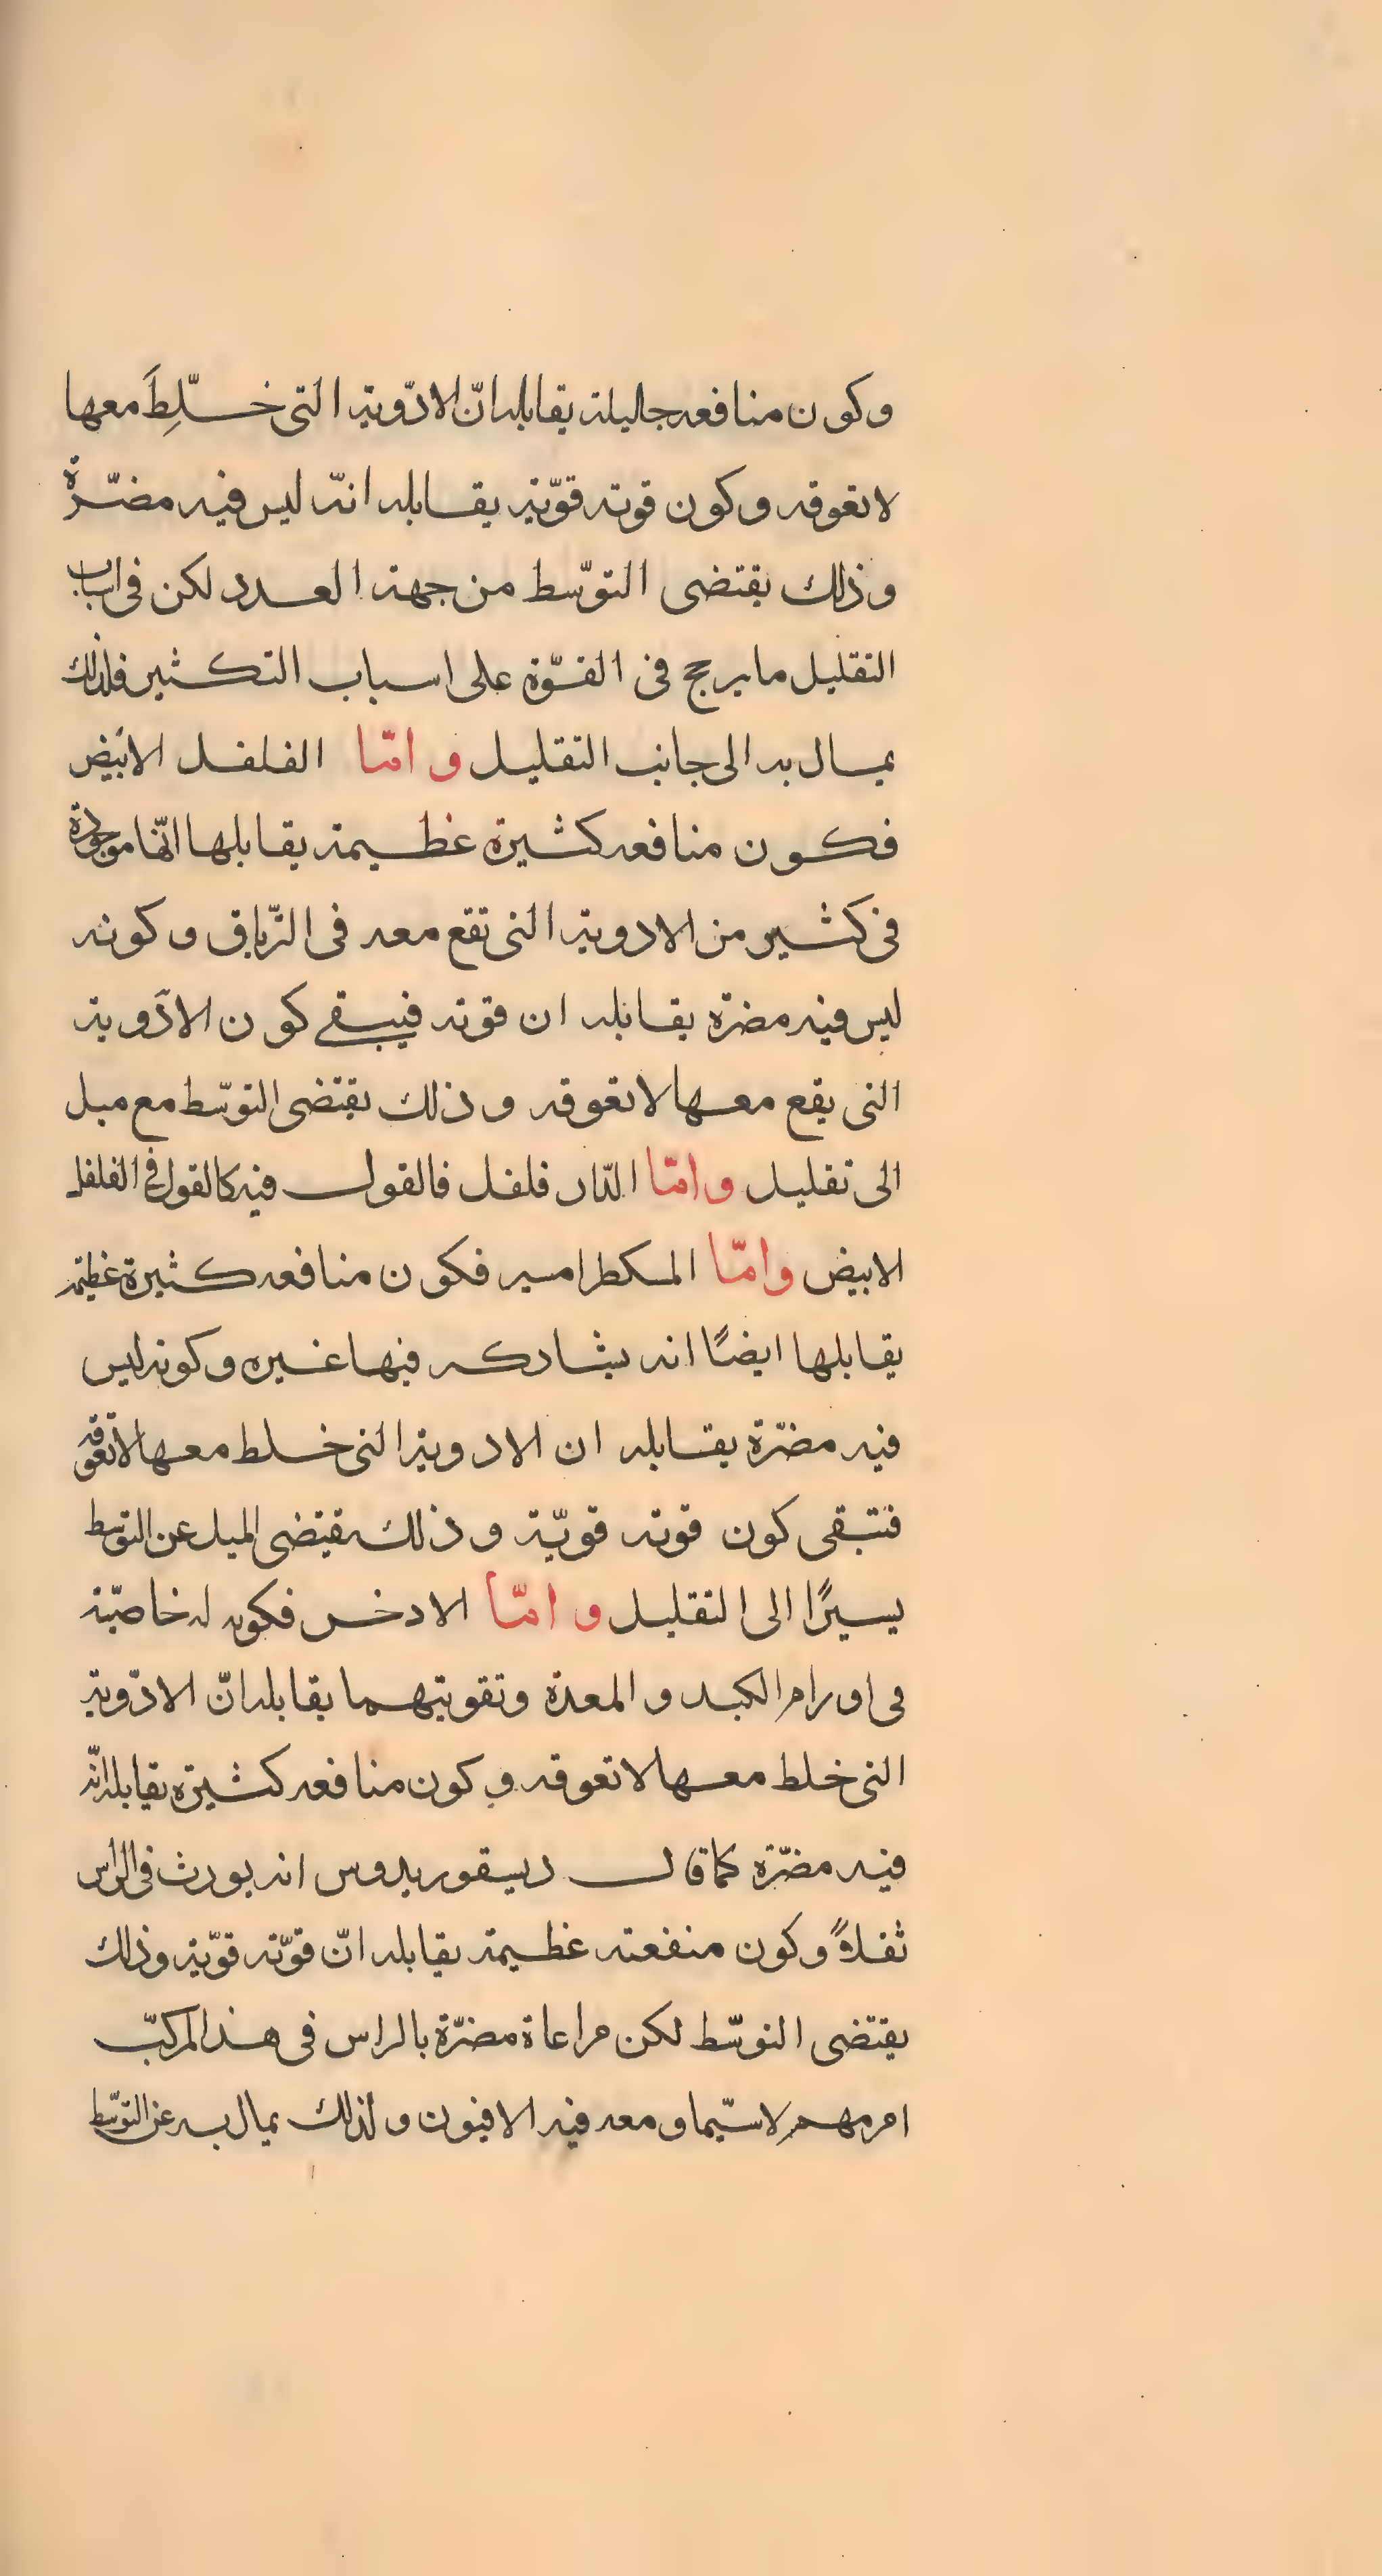 وكون منافعه جليلة يقابله انّ الادّوية التى خلّطَ معها
لا تعوقه وكون قوته قوّية يقابله انّه ليس فيه مضّرة
وذلك يقتضى التوّسط من جهة العدد لكن فى اسباب
التقليل ما يرجح فى القوّة على اسباب التكثير فلذلك
يمال به الى جانب التقليل و امّا الفلفل الابيض
فكون منافعه كثيرة عظيمة يقابلها انّها موجودة
فى كثير من الادوية التى تقع معه فى الترّياق وكونه
ليس فيه مضرة يقابله ان قوته فيبقى كون الادوية
التى يقع معها لا تعوقه وذلك يقتضى التوّسط مع ميل
الى تقليل وامّا الدّار فلفل فالقول فيه كالقول فى الفلفل
الابيض وامّا المسكطرامسير فكون منافعه كثيرة عظيمة
يقابلها ايضًا انه يشاركه فيها غيره وكونه ليس
فيه مضرّة يقابله ان الادوية التى خلط معها لا تعوقه
فتبقى كون قوته قويّة وذلك يقتضى الميل عن التوسط
يسيرًا الى التقليل و امّا الادخر فكونه له خاصيّة
فى اورام الكبد و المعدة وتقويتهما يقابله انّ الادّوية
التى خلط معها لا تعوقه وكون منافعه كثيرة يقابله انّه
فيه مضرّة كما قال ديسقوريدوس انه يورث فى الراس
ثقلاً وكون منفعته عظيمة يقابله انّ قوّته قوّية وذلك
يقتضى التوسّط لكن مراعاة مضرّة بالراس فى هذا المركبّ
امر مهم لا سيّما و معه فيه الافيون ولذلك يمال به عن التوسّط